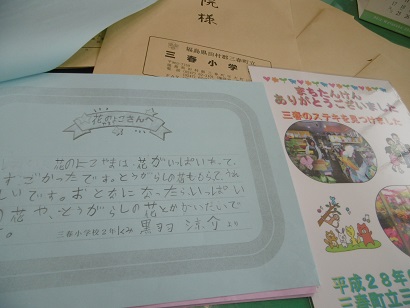 院 様
福島県田村郡三春町立
三 春 小 学
花のよこさん
花のよこやまは、花がいっぱいあって、
すごかったです。とうがらしの花もらって、うれ
しいです。おとなになったらいっぱい
の花や、とうがらしの花とかがいたいで
。
三春小学校2年 くみ 黒羽 涼介 より
まちたんけん
ありがとうございました
三春のステキを見つけました
平成28年
三春町立三